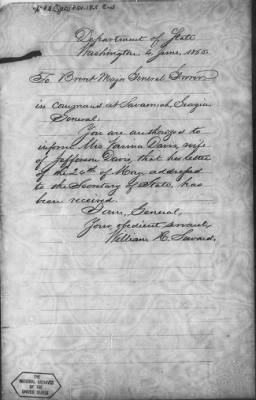 Department of State
Washington 4 June, 1865.
To Brevt Major General
in command at Savannah, Georgia
General:
You are authorized to
inform Mrs Varina Davis, wife
of Jefferson Davis, that her letter
of the 24th of May, addressed
to the Secretary of State, has
been received.
I am, General,
Your obedient servant,
William H. Seward.
THE
NATIONAL ARCHIVES
OF THE
UNITED STATES